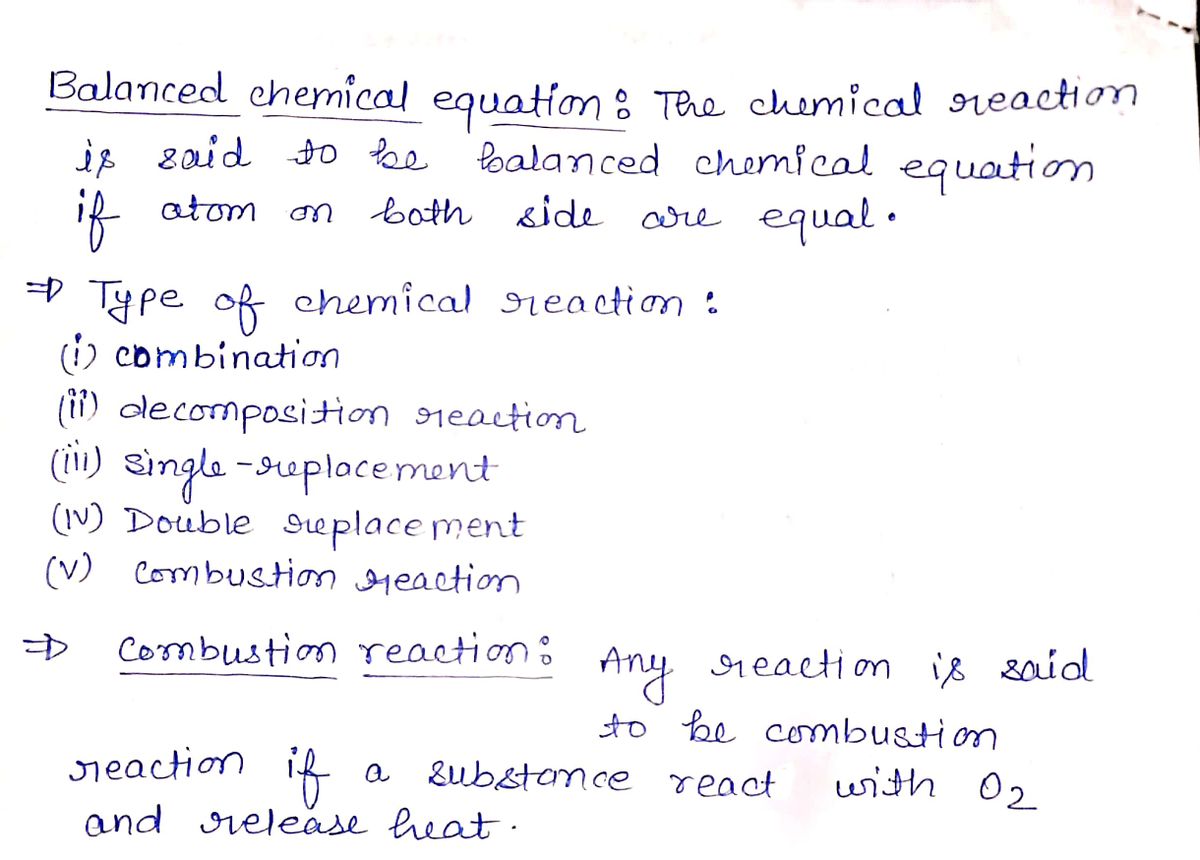 Balanced chemical equation : The chemical reaction
is said to be balanced chemical equation
if atom on both side are equal.
⇒ Type of chemical reaction :
(i) combination
(ii) decomposition reaction
(iii) single-replacement
(iv) Double replacement
(v) combustion reaction
⇒ Combustion reaction : Any reaction is said
to be combustion
reaction if a substance react with O2
and release heat.